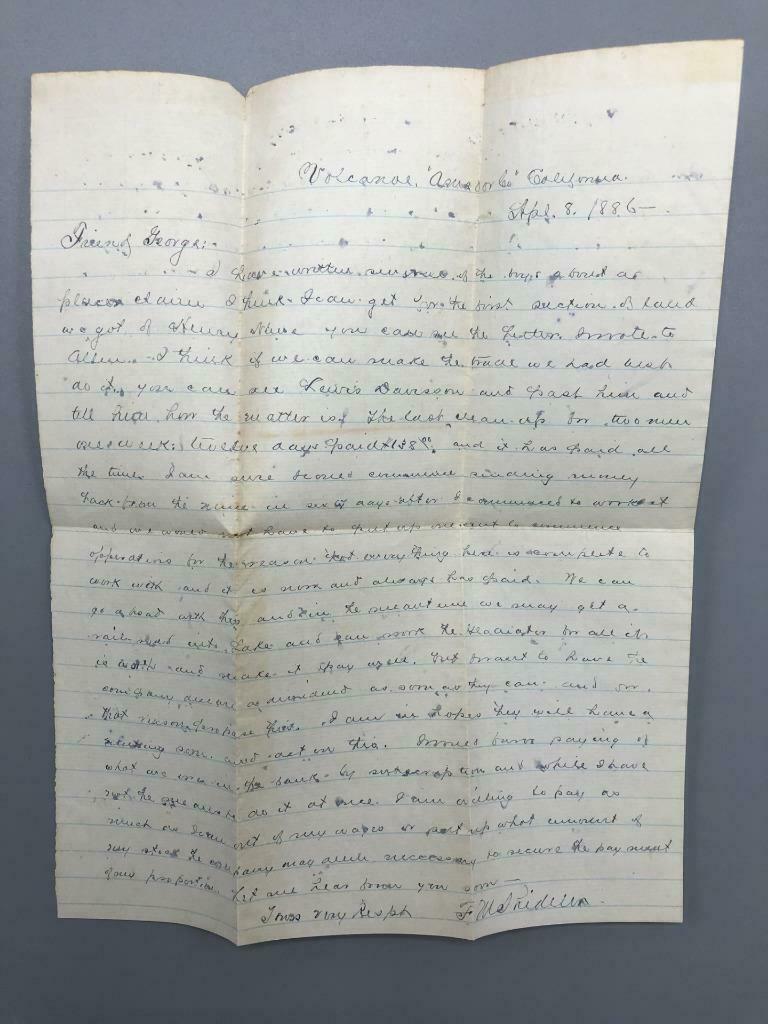 Volcanoe, "Amador Co" California.
Apl. 8. 1886—
Friend George:-
I have written several of the boys about a
placer claim I think I can get for the first section of land
we got of Henry you can see the letter I wrote to
Allen. I think if we can make the trade we had best
do it, you can see Lewis Davison and Past him and
tell him how the matter is. The last clean up for two men
one week: twelve days paid $138 and it has paid all
the time. I am sure I could commence sending money
back from the mine in six days after I commenced to work it
and we would not have to put up one cent to commence
operations for the reason that every thing here is complete to
work with and it is now and always has paid. We can
go ahead with this and in the meantime we may get a
railroad into Lake and can work the Gladiator for all it
is worth and make it pay well. but I want to have the
company declare a dividend as soon as they can and for
that reason purpose this. I am in hopes they will have a
meeting soon and act on this. I would favor paying of
what we owe in the bank by subscription and while I have
not the means to do it at once. I am willing to pay as
much as I can out of my wages or put up what amount of
my stock the company may deem necessary to secure the payment
of my proportion. Let me hear from you soon—
Yours very Respt F. M.